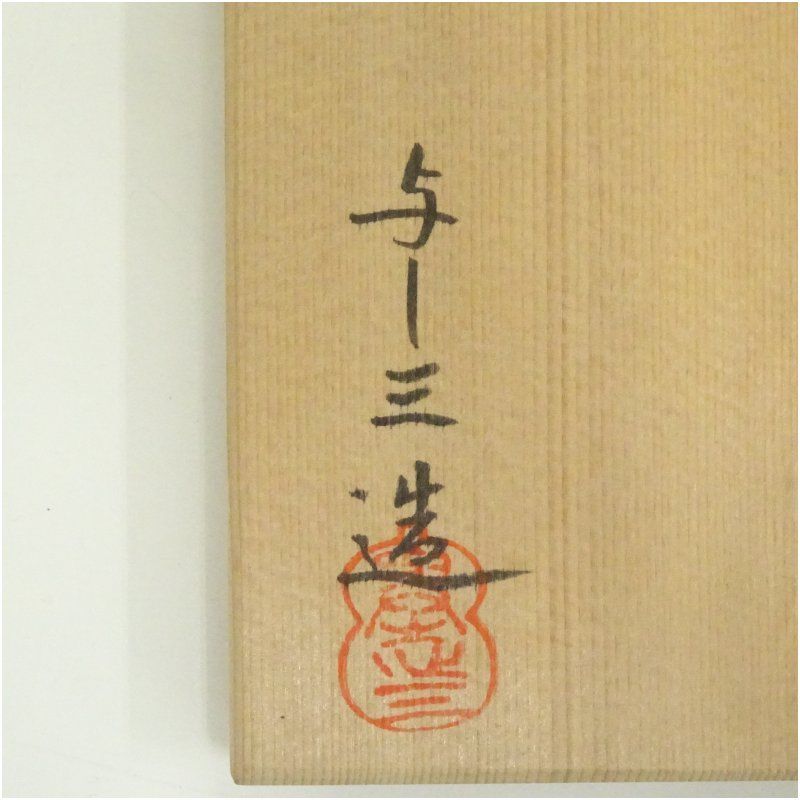 与し三造